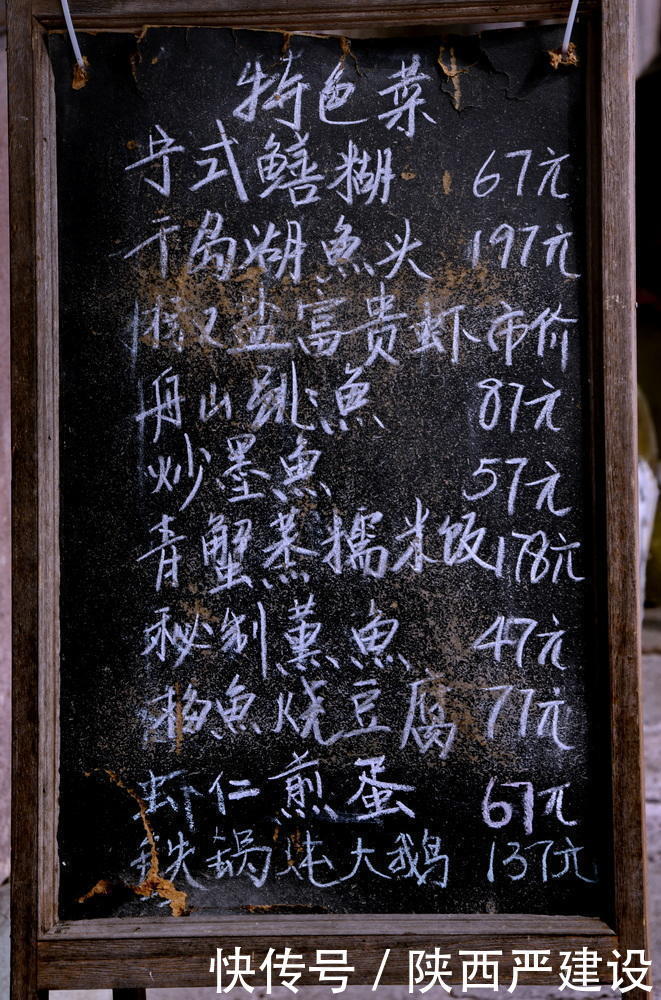 特色菜
宁式鳝糊 67元
千岛湖魚头 197元
椒盐富贵虾 市价
舟山跳魚 87元
炒墨魚 57元
青蟹蒸糯米饭 178元
秘制薰魚 47元
梅魚烧豆腐 77元
虾仁煎蛋 67元
铁锅炖大鹅 137元
快传号 / 陕西严建设